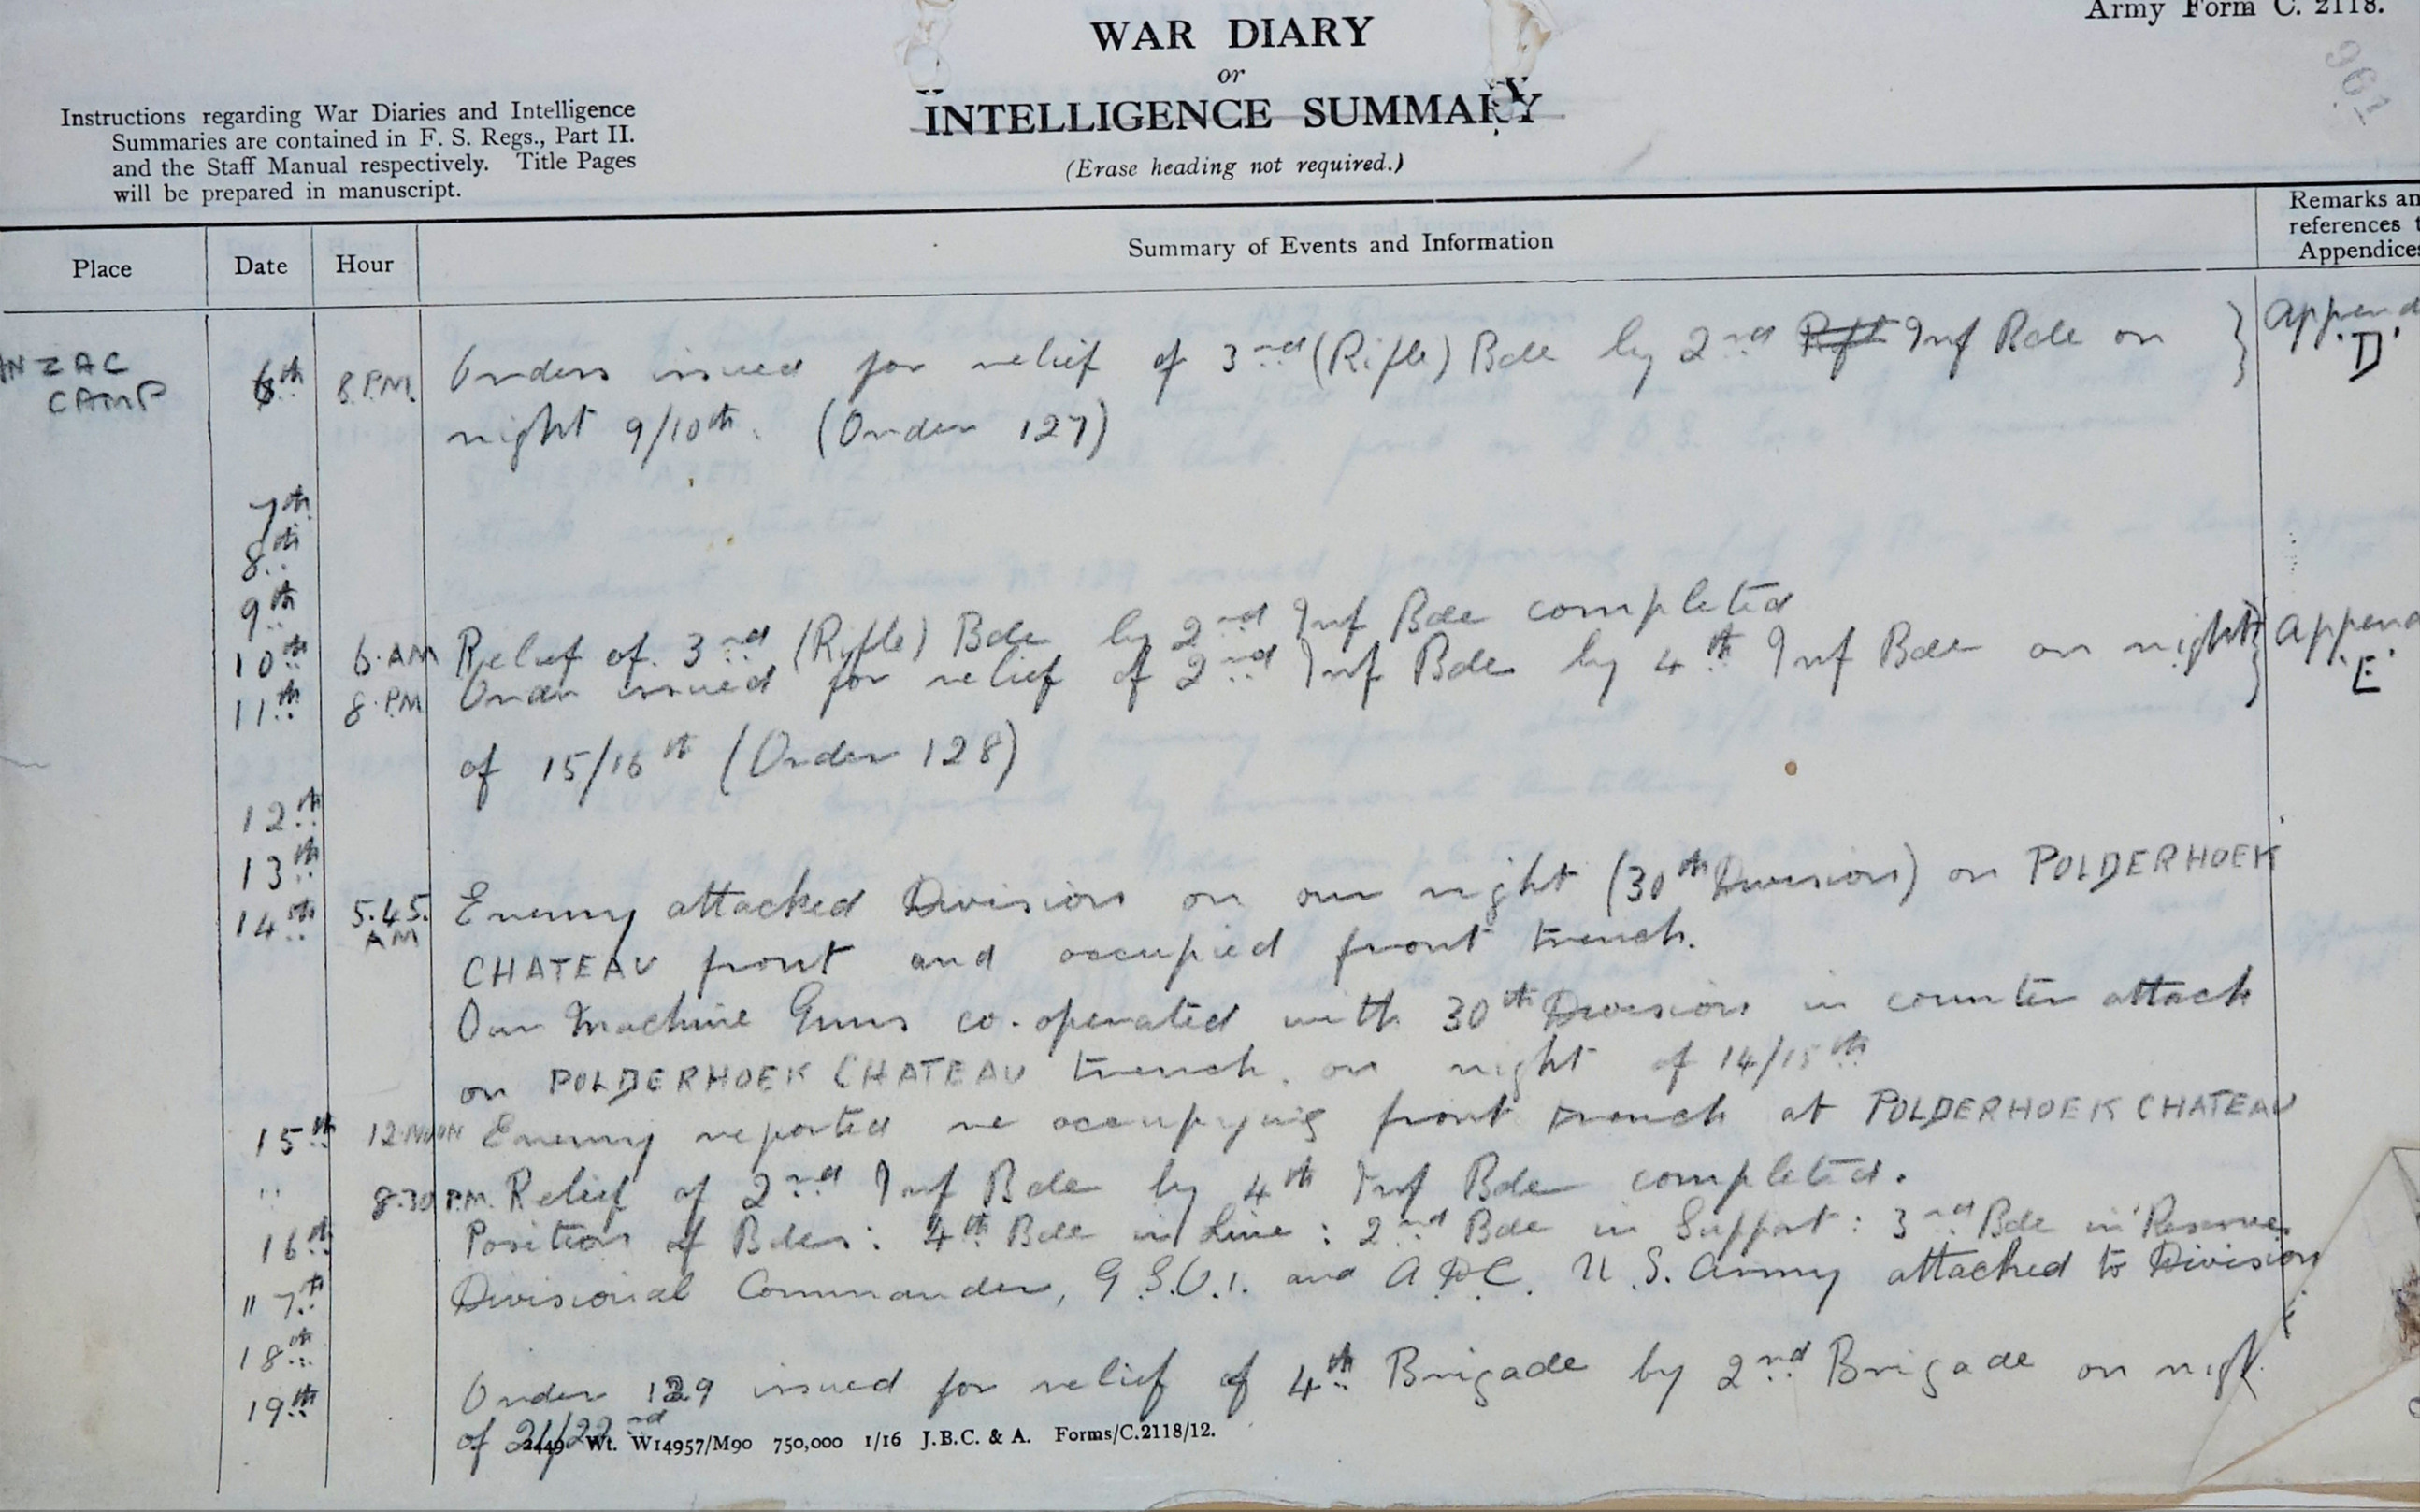 Army Form C. 2118.
961
WAR DIARY
or
INTELLIGENCE SUMMARY
(Erase heading not required.)
Instructions regarding War Diaries and Intelligence
Summaries are contained in F. S. Regs., Part II.
and the Staff Manual respectively. Title Pages
will be prepared in manuscript.
Place Date Hour Summary of Events and Information
Remarks an
references t
Appendices
NZAC CAMP 6th 8 P.M. Orders issued for relief of 3rd (Rifle) Bde by 2nd Rfl Inf Bde on } Append
night 9/10th. (Order 127) D'
7th
8th
9th
10th 6.AM Relief of 3rd (Rifle) Bde by 2nd Inf Bde completed
11th 8.PM Order issued for relief of 2nd Inf Bde by 4th Inf Bde on night } Append
of 15/16th (Order 128) E
12th
13th
14th 5.45. AM Enemy attacked Division on our right (30th Division) on POLDERHOEK
CHATEAU front and occupied front trench.
Our Machine Guns co-operated with 30th Division in counter attack
on POLDERHOEK CHATEAU trench. on night of 14/15th
15th 12.NOON Enemy reported re occupying front trench at POLDERHOEK CHATEAU
" 8.30 P.M. Relief of 2nd Inf Bde by 4th Inf Bde completed.
16th Position of Bdes: 4th Bde in Line: 2nd Bde in Support: 3rd Bde in Reserve
" 7th Divisional Commander, G.S.O.1. and A.D.C. U.S. Army attached to Division
18th
19th Order 129 issued for relief of 4th Brigade by 2nd Brigade on nigh
of 21/22nd
2449 Wt. W14957/M90 750,000 1/16 J.B.C. & A. Forms/C.2118/12.